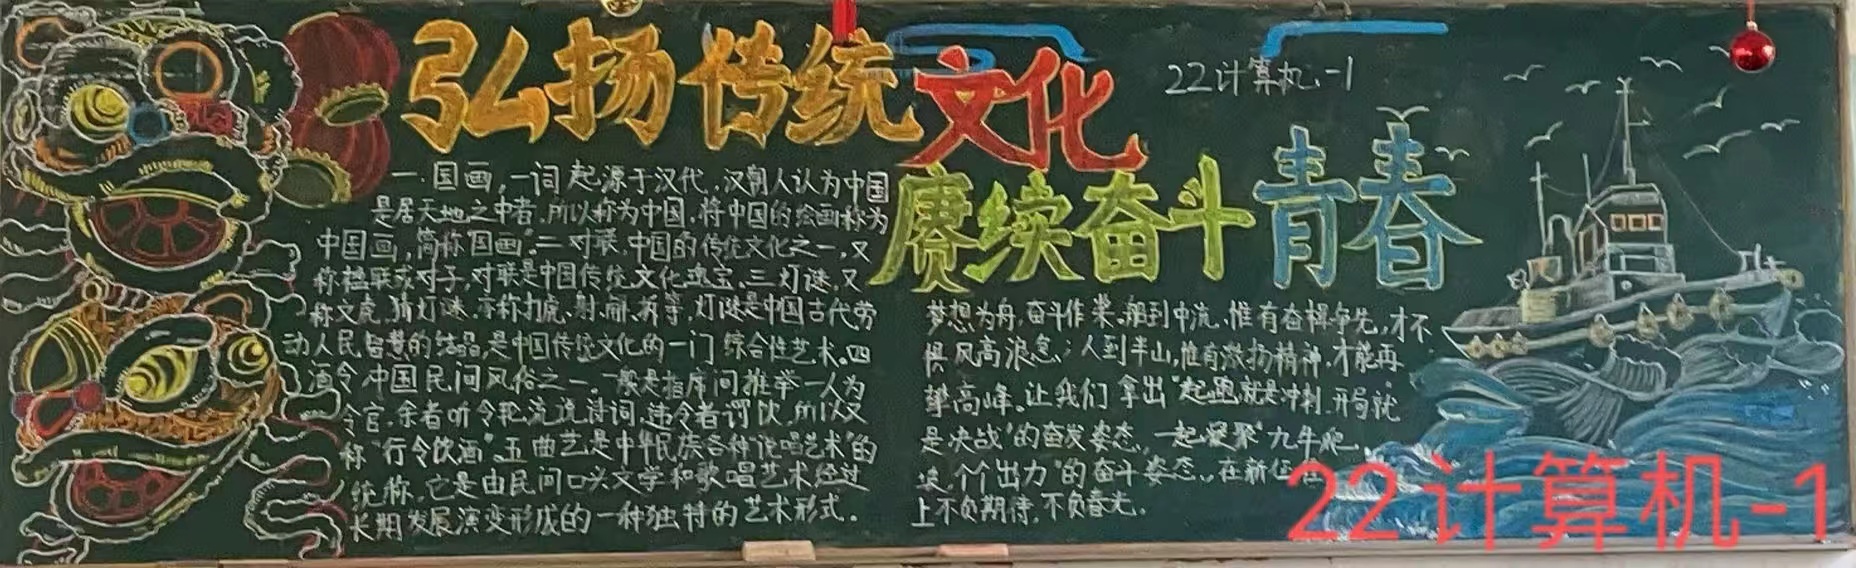 弘扬传统文化
22计算机-1
赓续奋斗青春
一.国画,一词起源于汉代,汉朝人认为中国
是居天地之中者,所以称为中国,将中国的绘画称为
中国画,简称"国画"二对联,中国的传统文化之一,又
称楹联或对子,对联是中国传统文化瑰宝.三灯谜,又
称文虎,猜灯谜,亦称打虎、射,灯谜是中国古代劳
动人民智慧的结晶,是中国传统文化的一门综合性艺术。四
酒令,中国民间风俗之一。一般是指席间推举一人为
令官,余者听令轮流说诗词,违令者罚饮,所以又
称"行令饮酒"。五曲艺是中华民族各种"说唱艺术"的
统称,它是由民间口头文学和歌唱艺术经过
长期发展演变形成的一种独特的艺术形式。
梦想为舟,奋斗作桨,船到中流,惟有奋楫争先,才不
惧风高浪急;人到半山,惟有激扬精神,才能再
攀高峰。让我们拿出"起跑就是冲刺,开局就
是决战"的奋发姿态,一起凝聚"九牛爬
坡,个个出力"的奋斗姿态。在新征
上不负期待,不负春光。
22计算机-1